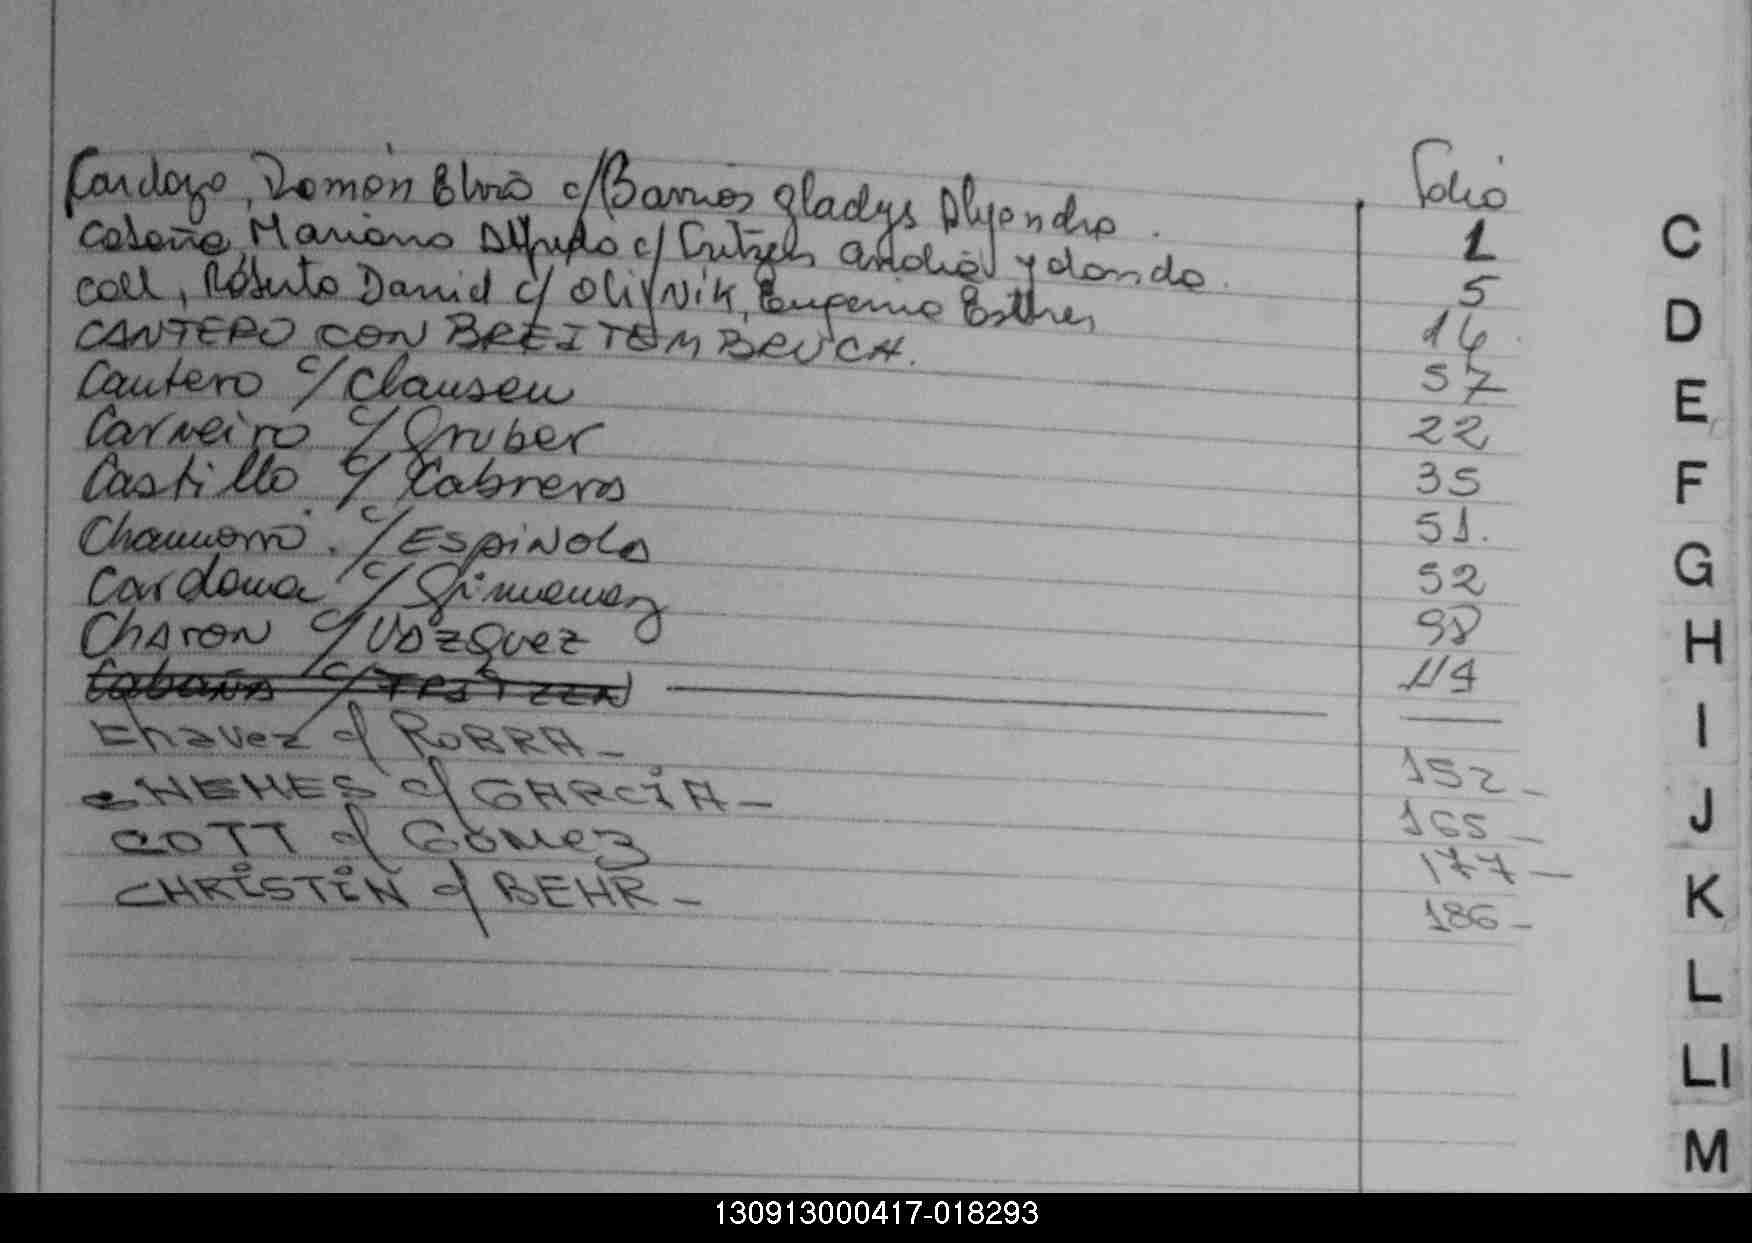 Folio
Cardozo, Ramón Elvio c/ Barrios Gladys Alejandra. 1
Mariano Alfredo c/ y 5
Coll, Roberto Daniel c/ Olijnik, Eugenia Esther 14
CANTERO CON BREITEMBRUCH. 57
Cantero c/ Clausen 22
Carneiro c/ Gruber 35
Castillo c/ Cabrera 51.
Chamorro. c/ Espinola 52
Cardoma c/ Gimenez 98
Charon c/ Vazquez 114
Cabaña c/
Chavez c/ ROBRA - 152 -
c/ GARCIA - 165 -
COTT c/ Gomez 177 -
CHRISTIN c/ BEHR - 186 -
C
D
E
F
G
H
I
J
K
L
Ll
M
130913000417-018293